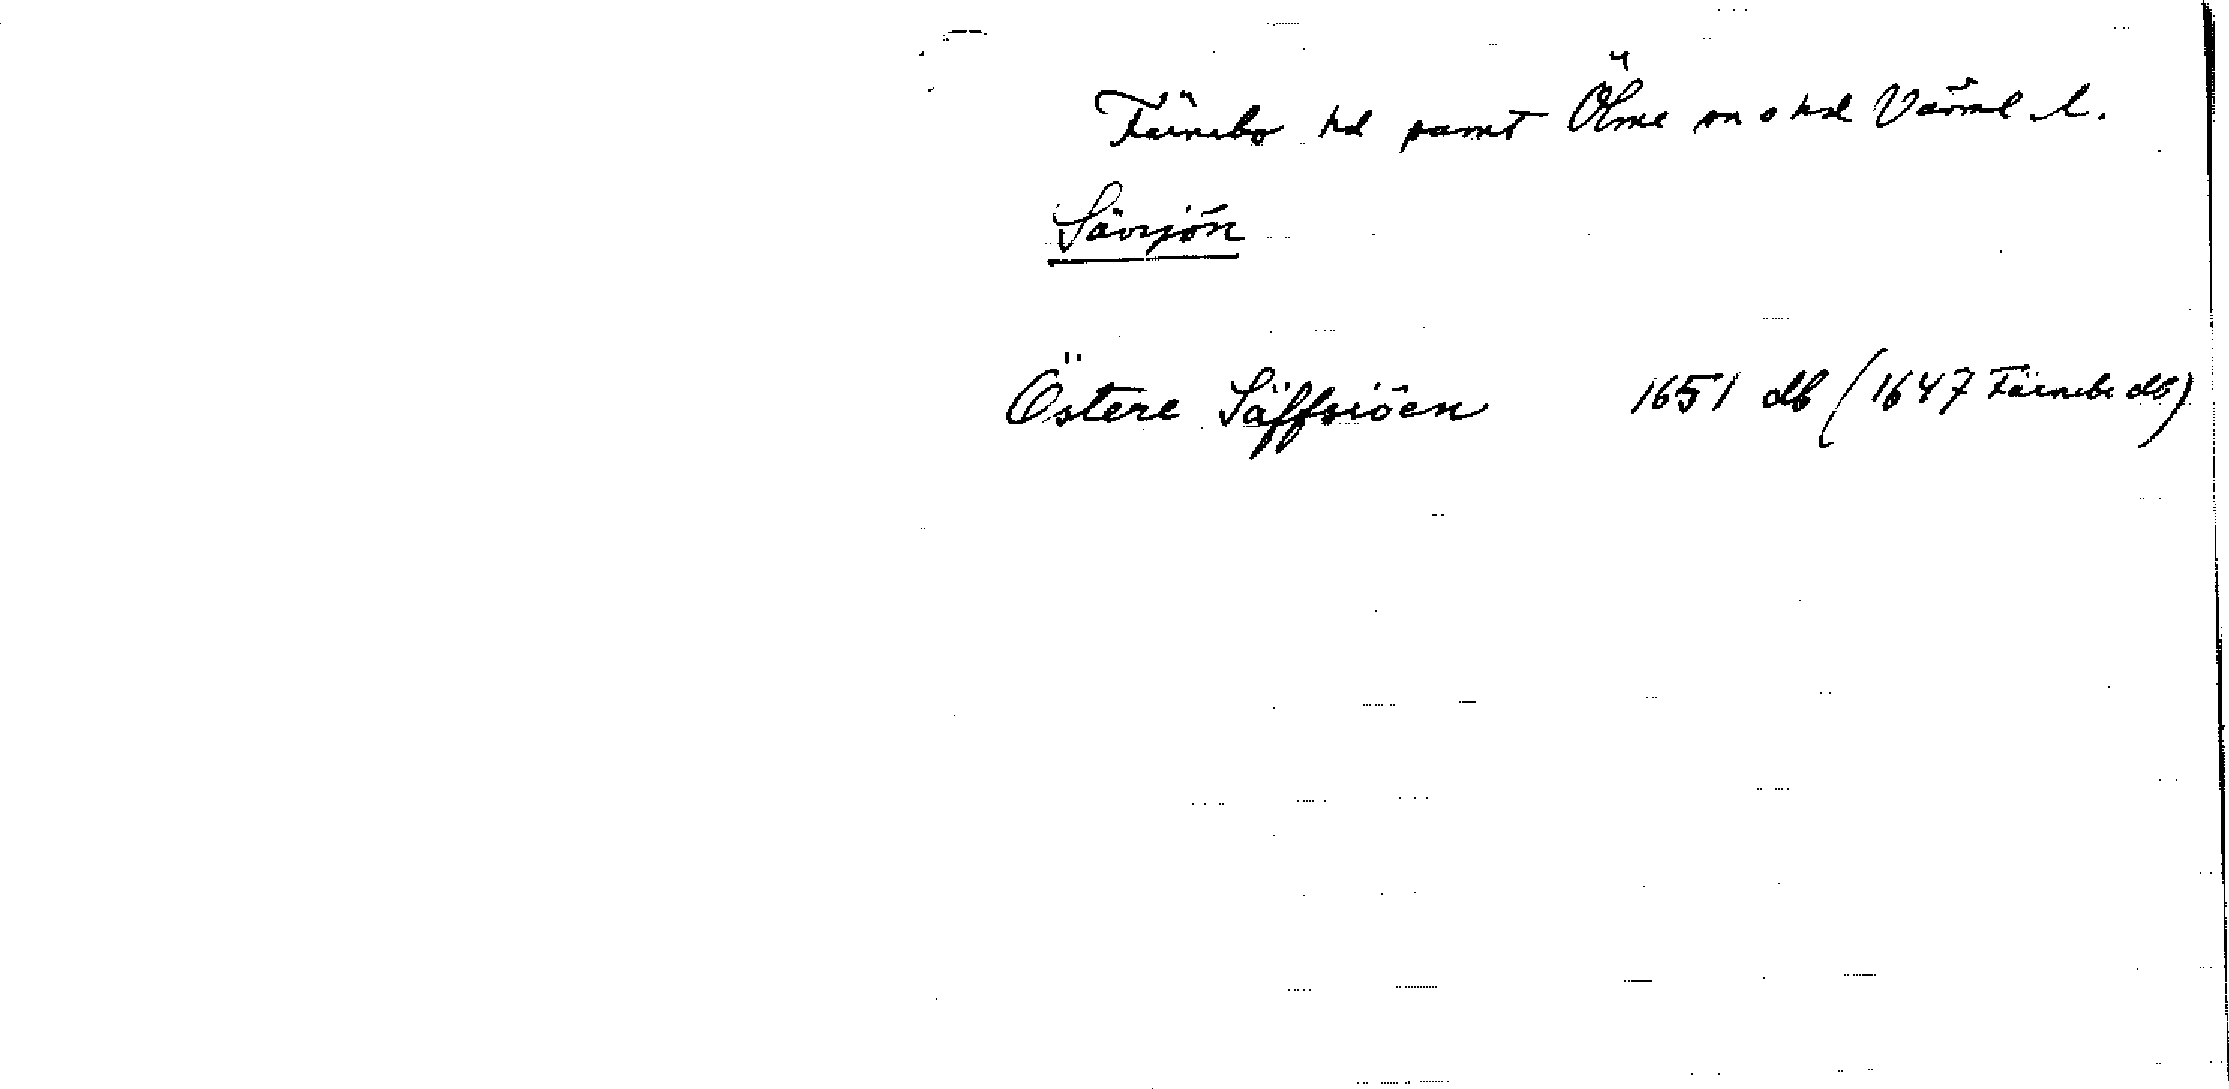 Färnebo hd samt Ölme sn o hd Värml. l.
Sävsjön
Östere Säffsiöen 1651 db (1647 Färnebo db)